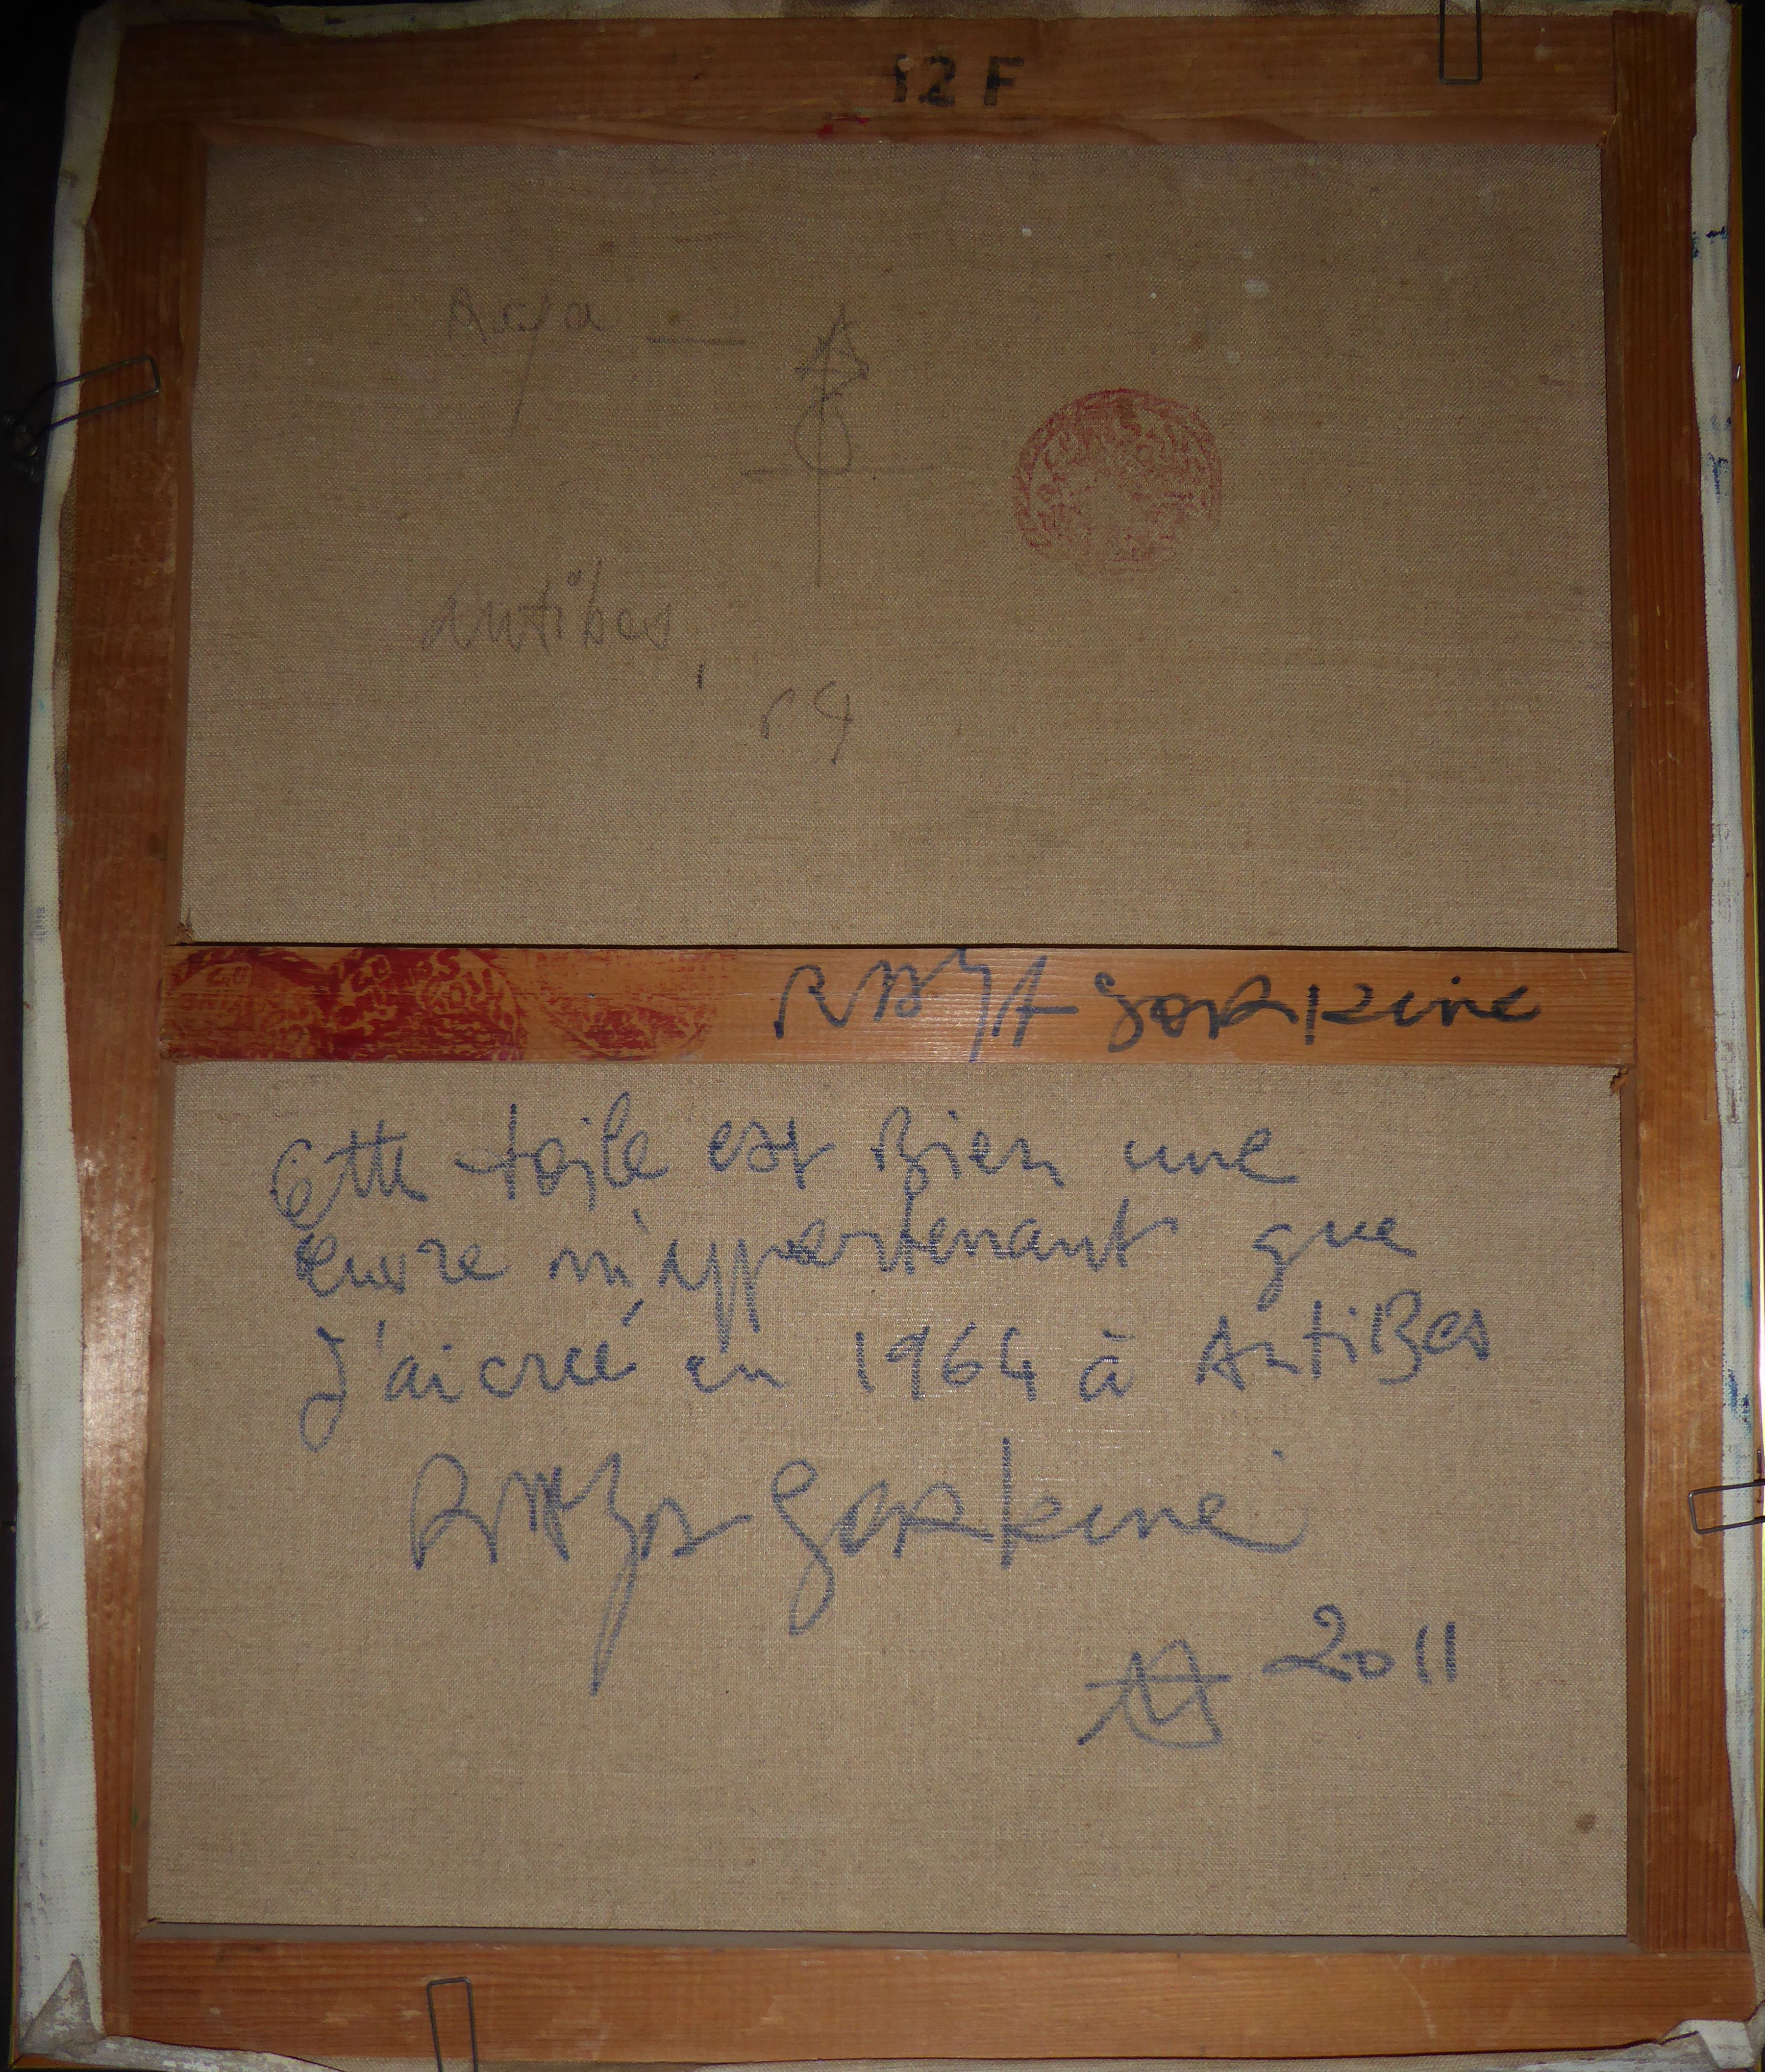 12 F
antibes,
64
RAYA Sorkine
Cette toile est Bien une
œuvre m'appartenant que
J'ai créé en 1964 à AntiBes
RAYA Sorkine
2011